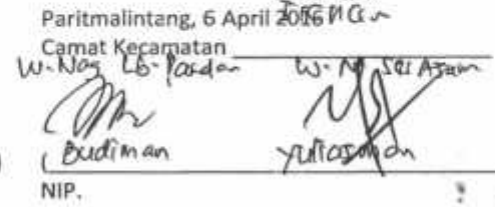 Paritmalintang, 6 April 2016
Camat Kecamatan
W-Nag Lb-Pandan W-N
Budiman Yuliasman
NIP.